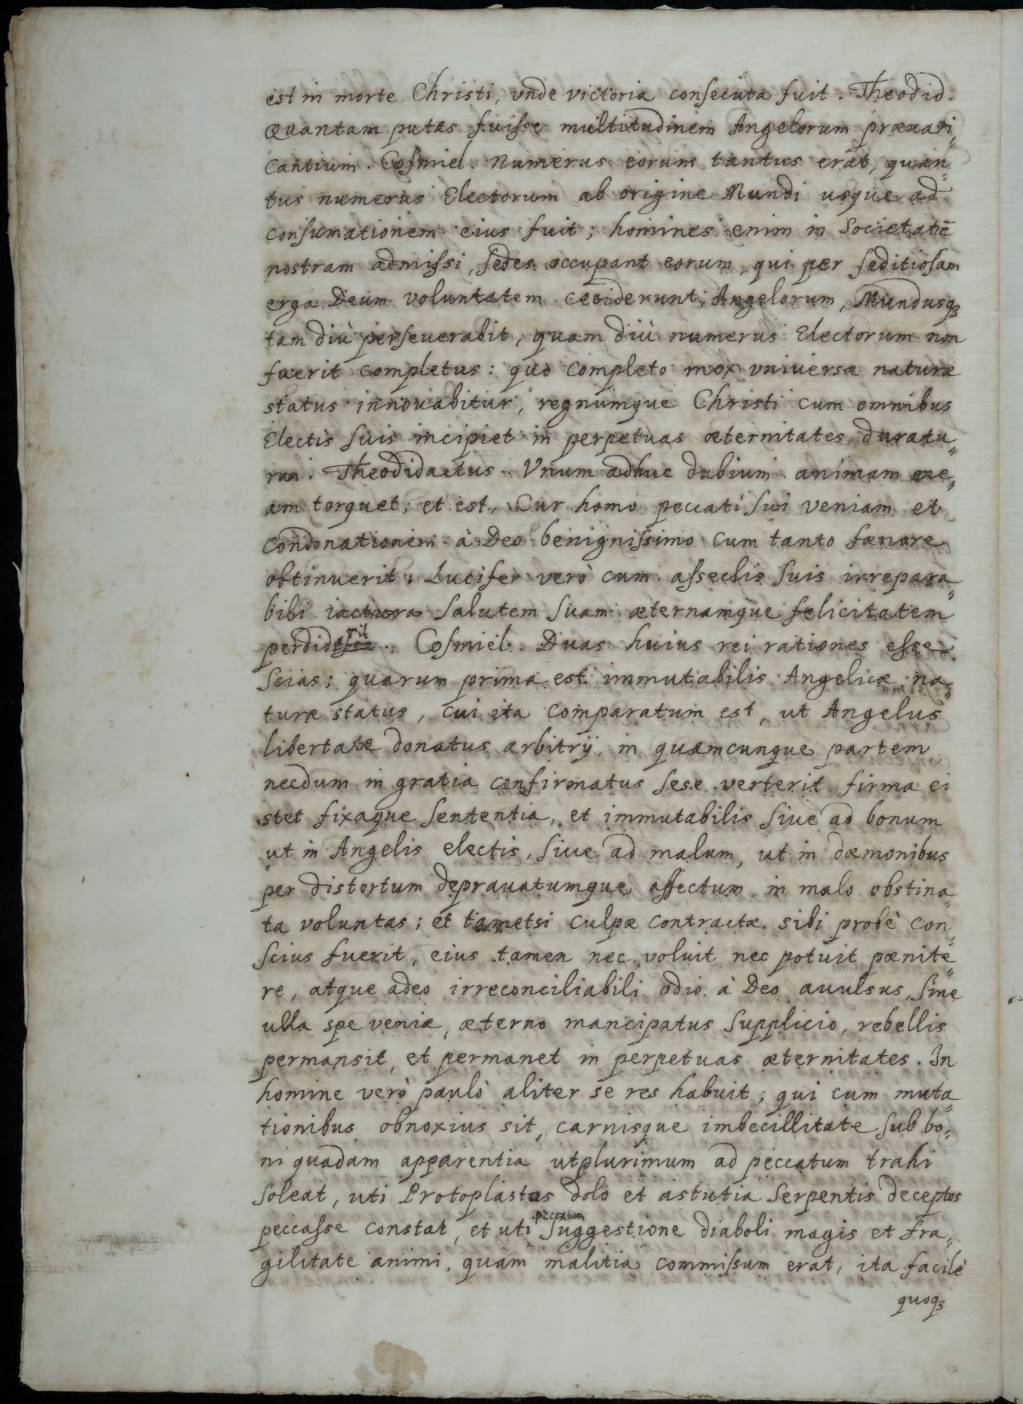 est in morte Christi, vnde victoria consecuta fuit. Theodid.
Quantam putas fuisse multitudinem Angelorum præuari=
cantium. Cosmiel. Numerus eorum tantus erat, quan=
tus numerus Electorum ab origine Mundi usque ad
consumationem eius fuit; homines enim in Societatē
nostram admissi, sedes occupant eorum, qui per seditiosam
erga Deum voluntatem ceciderunt, Angelorum, Mundusqȝ
tam diù perseuerabit, quam diù numerus Electorum non
fuerit completus: quo completo mox vniuersæ naturæ
status innouabitur, regnumque Christi cum omnibus
Electis suis incipiet in perpetuas æternitates duratu=
rum. Theodidactus. Vnum adhuc dubium animam me=
am torquet; et est, Cur homo peccati sui veniam et
condonationem à Deo benignissimo cum tanto fœnore
obtinuerit; Lucifer verò cum asseclis suis irrepara=
bili iactura salutem suam æternamque felicitatem
perdiderit. Cosmiel. Duas huius rei rationes esse
scias; quarum prima est immutabilis Angelicæ na=
turæ status, cui ita comparatum est, ut Angelus
libertate donatus arbitrij, in quamcunque partem
necdum in gratia confirmatus sese verterit firma ei
stet fixaque sententia, et immutabilis siue ad bonum
ut in Angelis electis, siue ad malum, ut in dæmonibus
per distortum deprauatumque affectum in malo obstina=
ta voluntas; et tametsi culpæ contractæ sibi probè con=
scius fuerit, eius tamen nec voluit nec potuit pœnite=
re, atque adeo irreconciliabili odio à Deo auulsus, sine
ulla spe veniæ, æterno mancipatus supplicio, rebellis
permansit, et permanet in perpetuas æternitates. In
homine verò paulò aliter se res habuit; qui cum muta=
tionibus obnoxius sit, carnisque imbecillitate sub bo=
ni quadam apparentia utplurimum ad peccatum trahi
soleat, uti Protoplastos dolo et astutia Serpentis deceptos
peccasse constat, et uti peccatum suggestione diaboli magis et fra=
gilitate animi, quàm malitia commissum erat, ita facilè
quoqȝ